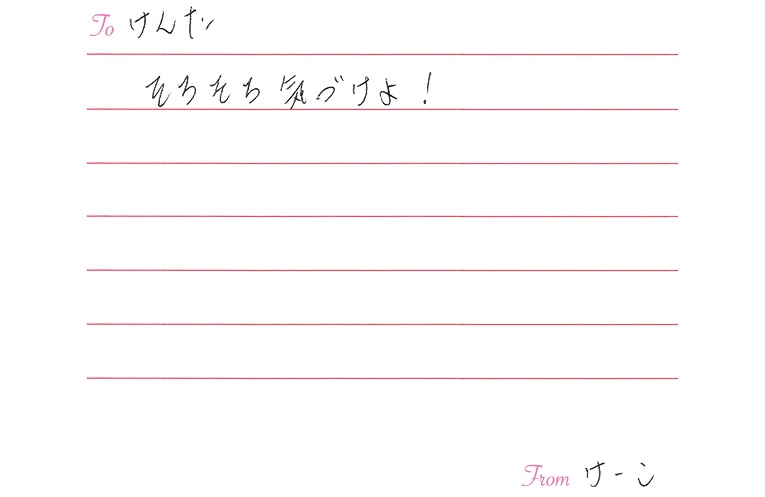 To けんた
そろそろ気づけよ！
From けーこ